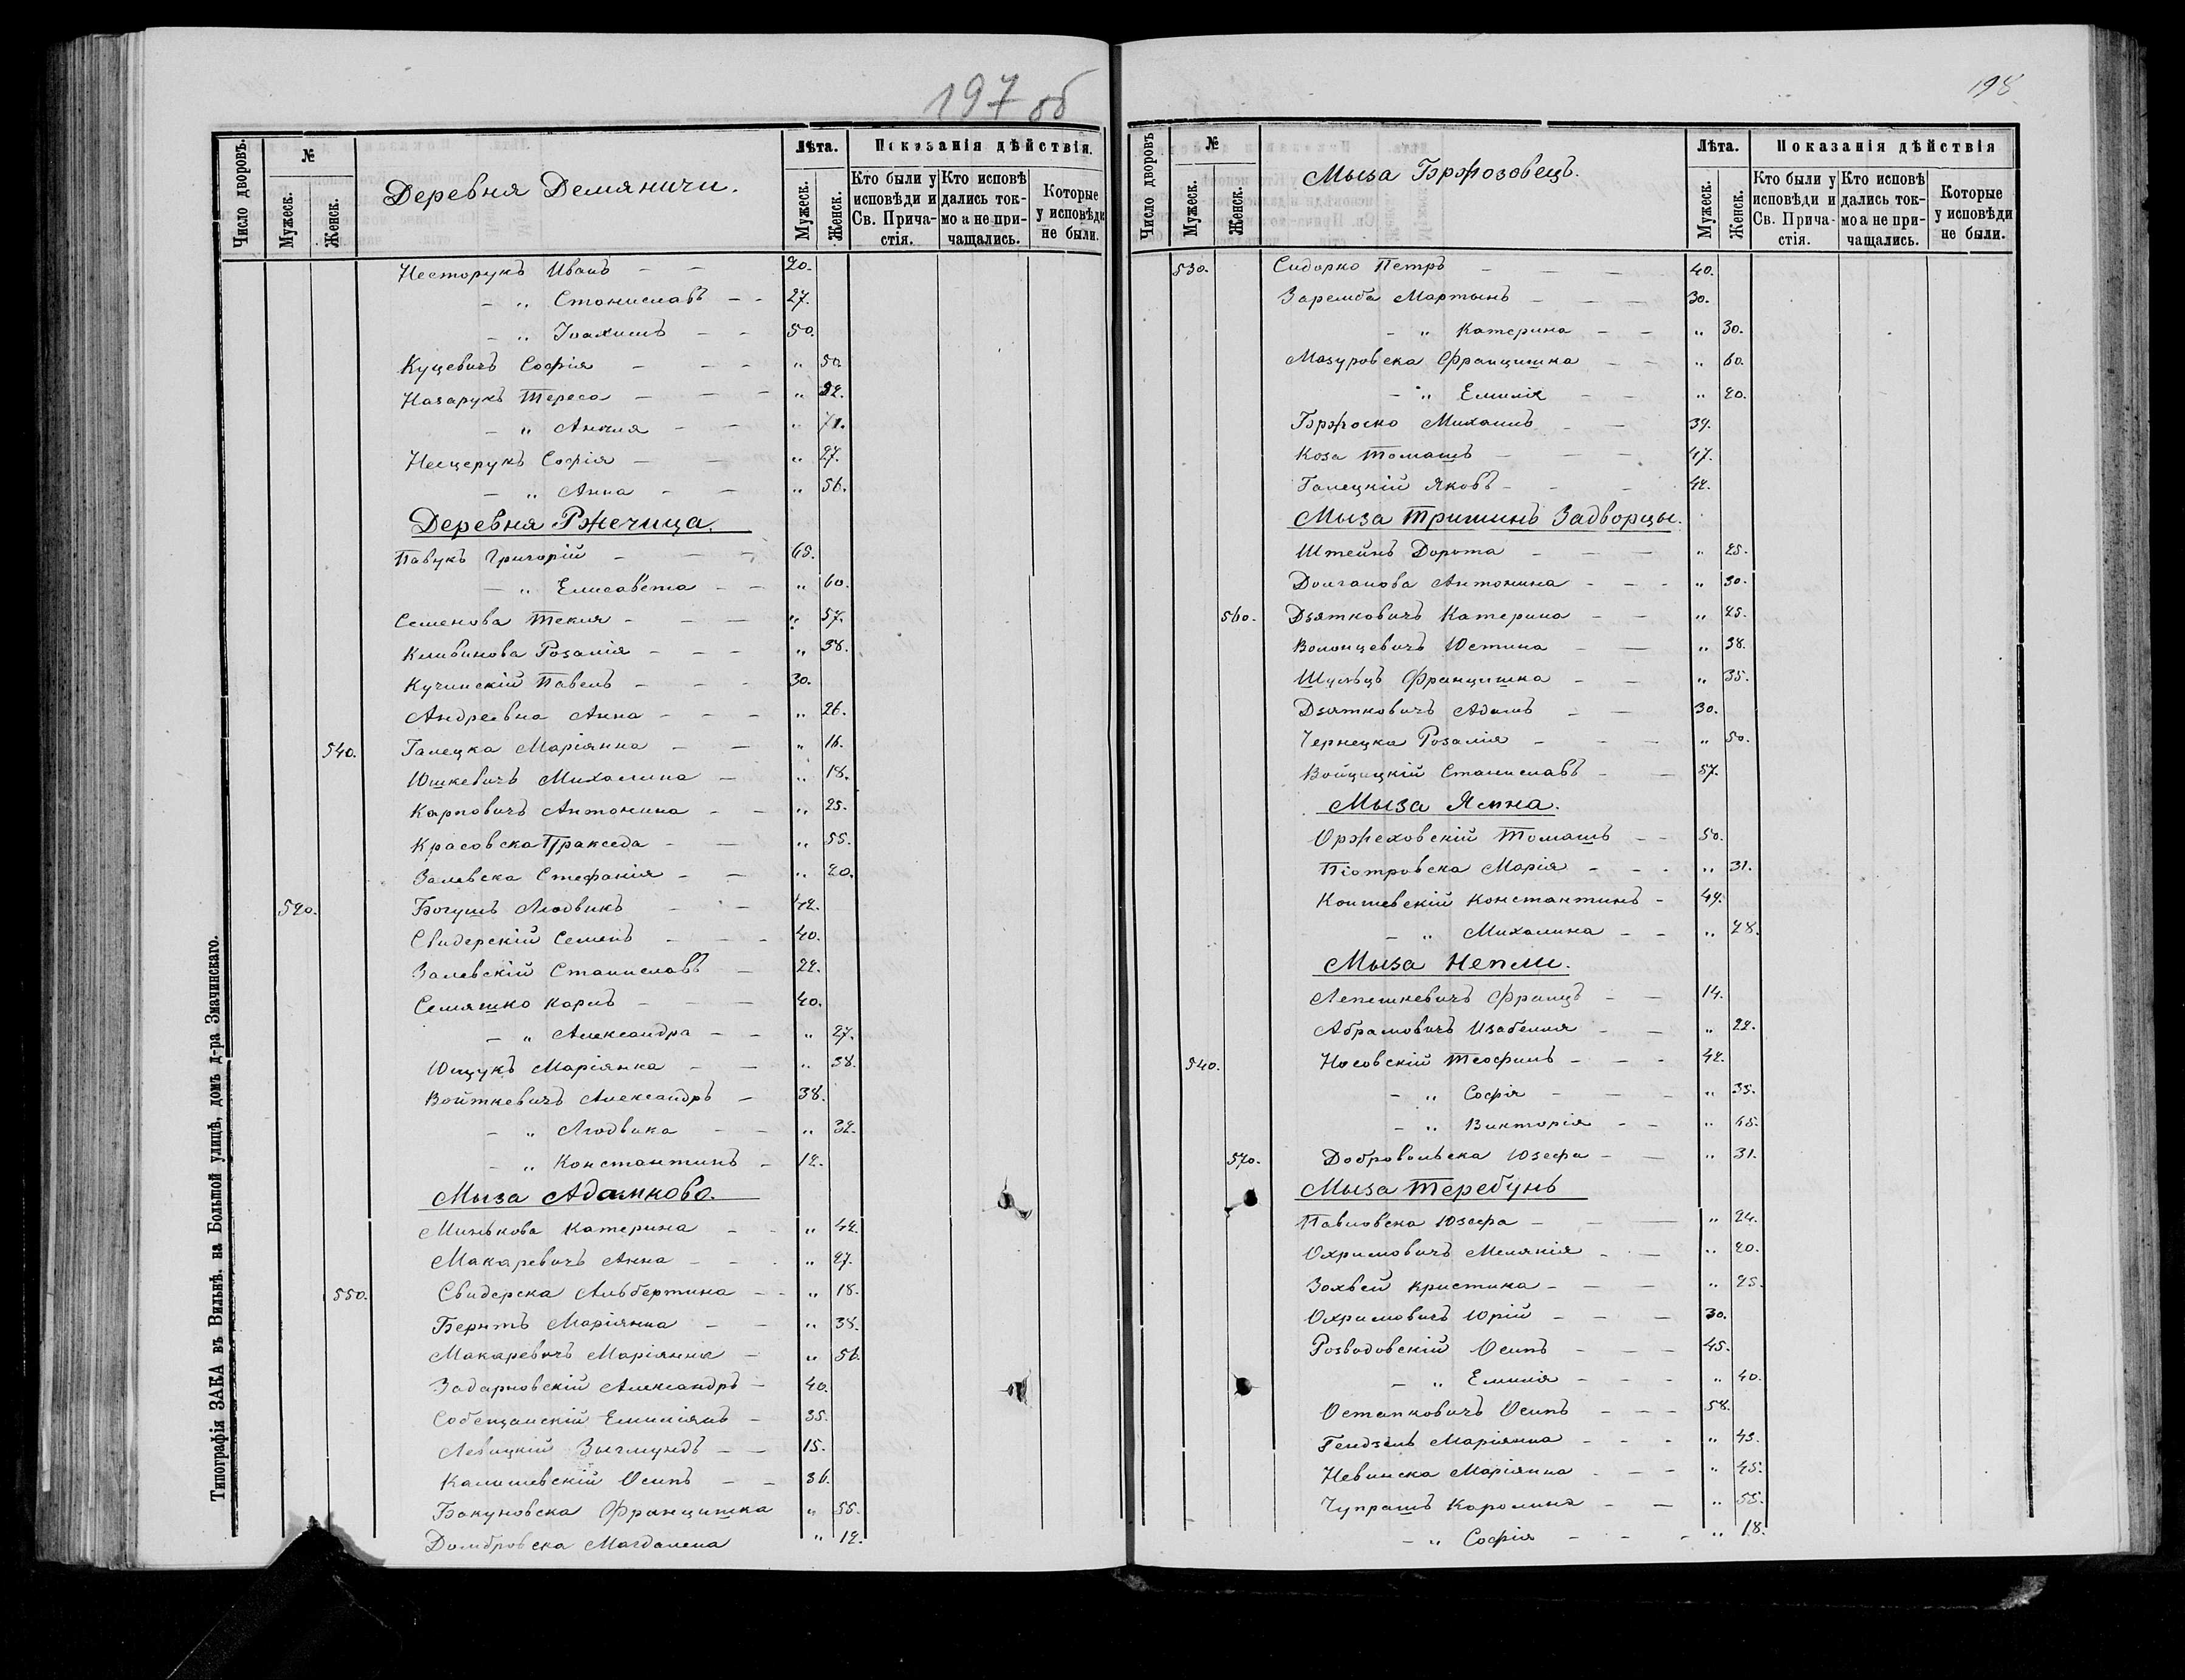 197 об
Число дворовъ.
№
Мужеск.
Женск.
Деревня Демяничи.
Лѣта.
Мужеск.
Женск.
Показанія дѣйствія.
Кто были у исповѣди и Св. Причастія.
Кто исповѣдались токмо а не причащались.
Которые у исповѣди не были.
Несторукъ Иванъ — — 20.
— „ Станиславъ — — 27.
— „ Іоахимъ — — 50.
Куцевичъ Софія — — — „ 50.
Назарукъ Тереса — — — „ 22.
— „ Анеля — — „
Нещерукъ Софія — — „ 27.
— „ Анна — — „ 56.
Деревня Ржечица.
Павукъ Григорій — — — 65.
— „ Елисавета — — „ 60.
Семенова Текля — — — „ 57.
Кливинова Розалія — — — „ 38.
Кучинскій Павелъ — — — 30.
Андреевна Анна — — — „ 26.
540. Галецка Маріянна — — „ 16.
Юшкевичъ Михалина — „ 18.
Карповичъ Антонина — — „ 25.
Красовска Пракседа — — „ 55.
Залевска Стефанія — — „ 20.
520. Богушъ Людвикъ — — 42.
Свидерскій Семенъ — — — 40.
Залевскій Станиславъ — 22.
Семяшко Карлъ — — — 40.
— „ Александра — — „ 27.
Ющукъ Маріянна — — „ 38.
Войткевичъ Александръ — 38.
— „ Людвика — — „ 32.
— „ Константинъ — 12.
Мыза Адамково.
Минькова Катерина — — „ 42.
Макаревичъ Анна — — — „ 27.
550. Свидерска Альбертина — — „ 18.
Берптъ Маріянна — — „ 38.
Макаревичъ Маріянна — „ 56.
Задарновскій Александръ — 40.
Собещанскій Емиліянъ — 35.
Левицкій Зыгмундъ — — 15.
Калишевскій Осипъ — — 36.
Бакуновска Францишка „ 55.
Домбровска Магдалена „ 12.
Типографія ЗАКА въ Вильнѣ, на Большой улицѣ, домъ д-ра Змачинскаго.
198
Число дворовъ
№
Мужеск.
Женск.
Мыза Бржозовецъ.
Лѣта.
Мужеск.
Женск.
Показанія дѣйствія
Кто были у исповѣди и Св. Причастія.
Кто исповѣдались токмо а не причащались.
Которые у исповѣди не были.
530. Сидорко Петръ — — — 40.
Заремба Мартынъ — — — 30.
— „ Катерина — — „ 30.
Мазуровска Францишка — — „ 60.
— „ Емилія — — „ 20.
Бржоско Михаилъ — — 39.
Коза Томашъ — — — 47.
Галецкій Яковъ — — — 42.
Мыза Тришинъ Задворцы.
Штейнъ Дорота — — — „ 25.
Долганова Антонина — — — „ 30.
560. Дзятковичъ Катерина — — „ 25.
Волонцевичъ Юстина — — „ 38.
Шульцъ Францишка — — „ 35.
Дзятковичъ Адамъ — — 30.
Чернецка Розалія — — — „ 50.
Войцицкій Станиславъ — — 57.
Мыза Ямна.
Оржеховскій Томашъ — — 50.
Піотровска Марія — — — „ 31.
Коишевскій Константинъ — 49.
— „ Михалина — — „ 28.
Мыза Непли.
Лепешкевичъ Францъ — — 14.
Абрамовичъ Изабелля — — „ 22.
540. Носовскій Теофилъ — — — 42.
— „ Софія — — — „ 35.
— „ Викторія — — „ 45.
570. Добровольска Юзефа — — „ 31.
Мыза Теребунь
Павловска Юзефа — — — „ 24.
Охримовичъ Мелянія — — „ 20.
Зохвей Кристина — — — „ 25.
Охримовичъ Юрій — — — 30.
Розвадовскій Осипъ — — — 45.
— „ Емилія — — — „ 40.
Остапковичъ Осипъ — — — 58.
Гендзель Маріянна — — — „ 43.
Невинска Маріянна — — — „ 45.
Чупрашъ Каролина — — „ 55.
— „ Софія — — — „ 18.